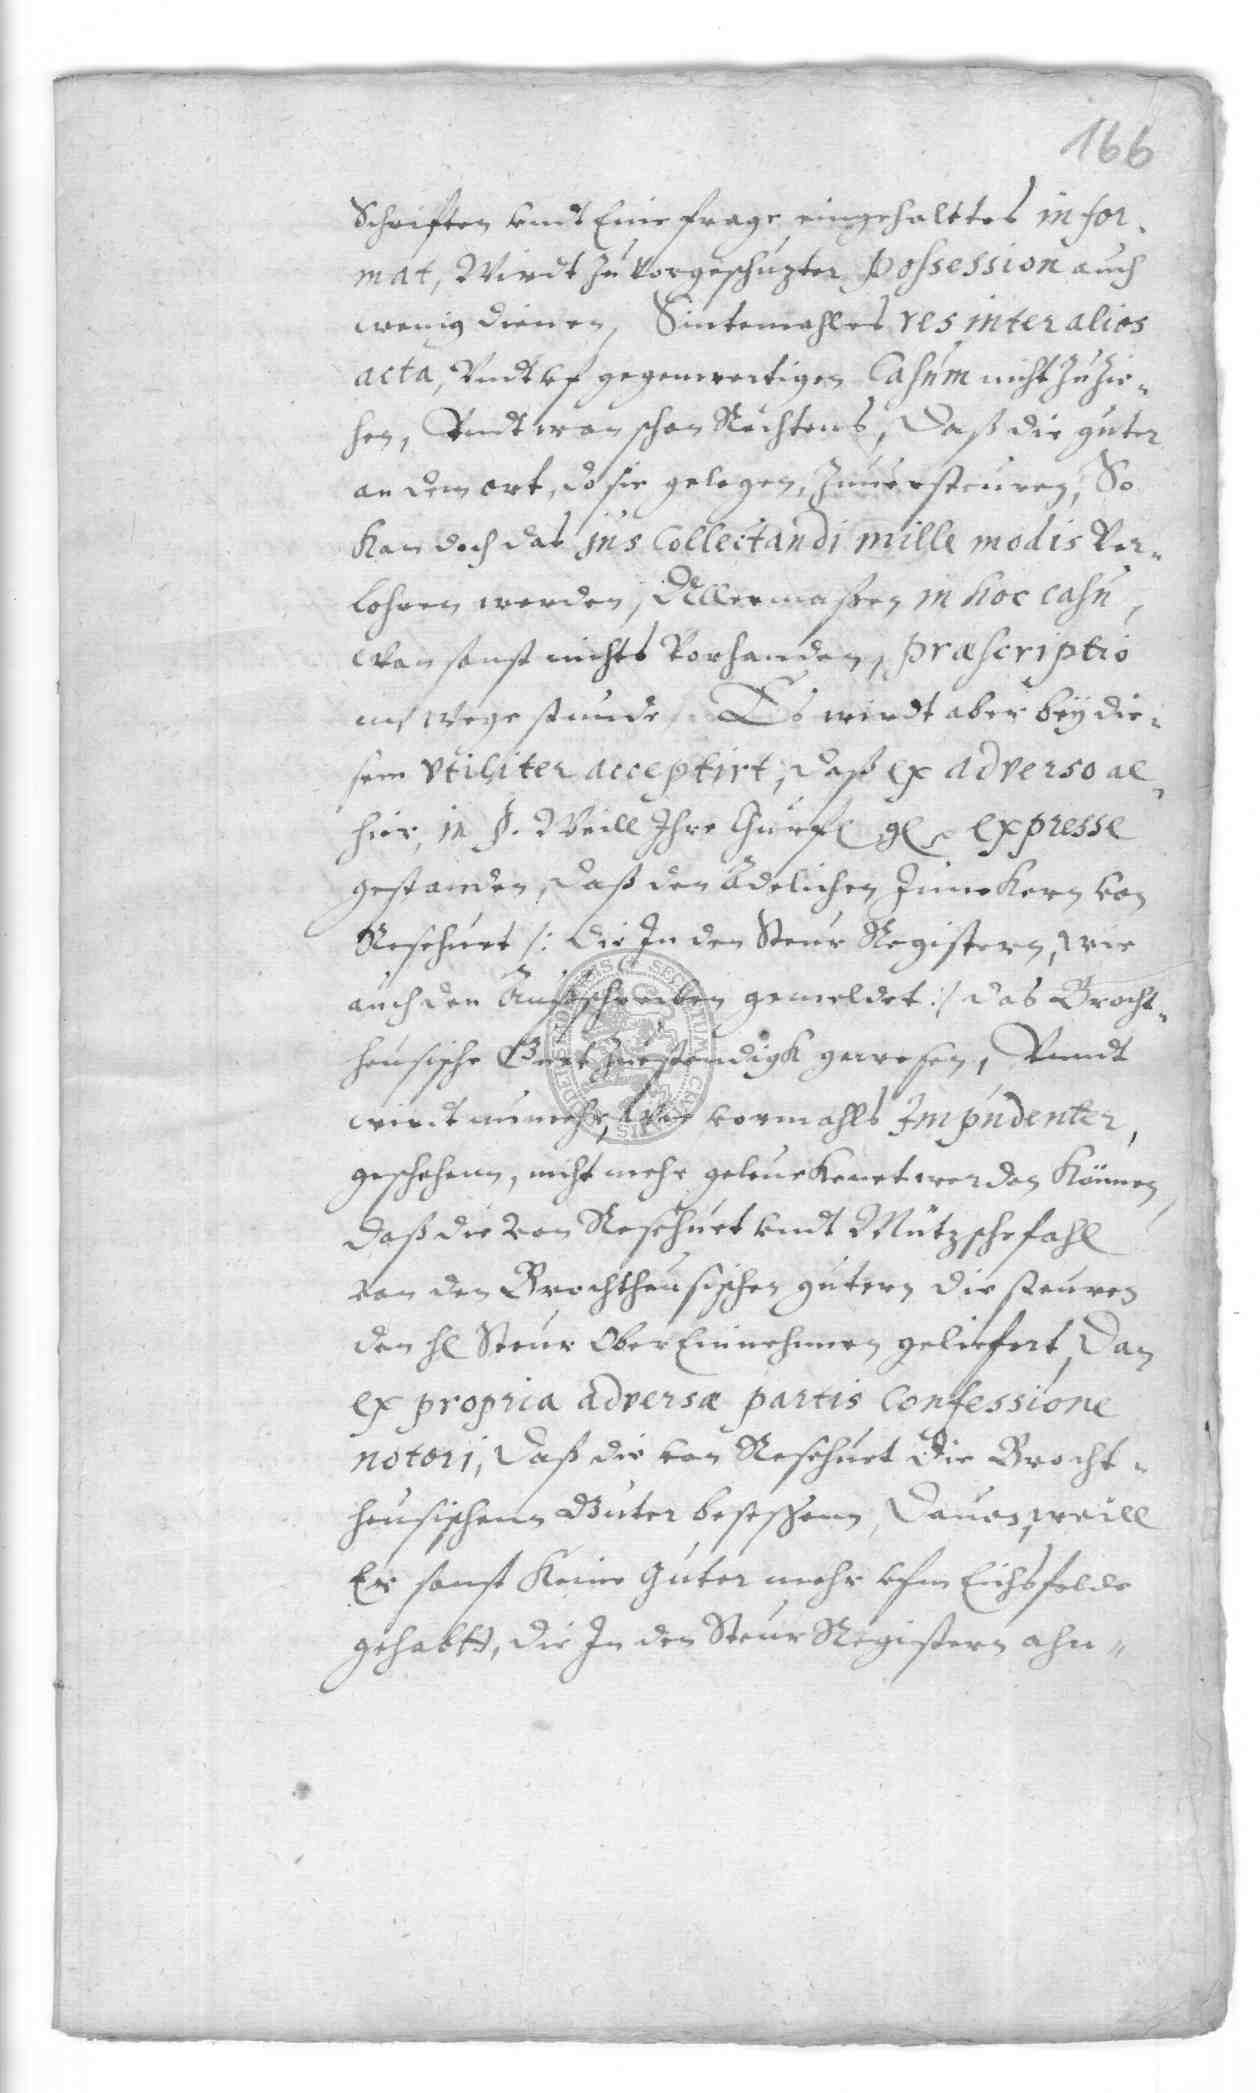 166
Schrifften undt Eine frage eingehaltes infor-
mat, Wirdt zu vorgeschützter possession auch
wenig dienen, Sintemahl es res inter alios
acta, Undt uf gegenwertigen Casum nicht zu zie-
hen, Undt wan schon Rechtens, Daß die guter
an dem ort, do sie gelegen, zuuersteuren, So
Kan doch das jus Collectandi mille modis Ver-
lohren werden, Allermaßen in hoc casu,
wan sonst nichts Vorhanden, præscriptio
im wege stunde. Es wirdt aber beÿ die-
sem utiliter acceptirt, daß ex adverso al-
hier, in §. Weill Ihre Churfl. gl. expresse
gestanden, daß den Adelichen Junckern von
Resehuet /: die In den Steur Registern, wie
auch den Außschreiben gemeldet :/ das Brocht-
heusische Guet zustendigk gewesen, Unndt
wirdt nunmehr, wie vormahls Impudenter,
geschehenn, nicht mehr geleuckenet werden Können,
daß die von Resehuet undt Mützschefahl
von den Brochtheusischen gütern die steuren
den hl Steur Ober Einnehmern geliefert, Dan
ex propria adversæ partis Confessione
notori, Daß die von Resehuet die Brocht-
heusischenn Guter besessenn, Dauon, weill
Er sonst Keine Guter mehr ufm Eichsfelde
gehabtt, die In den Steur Registern ahn-